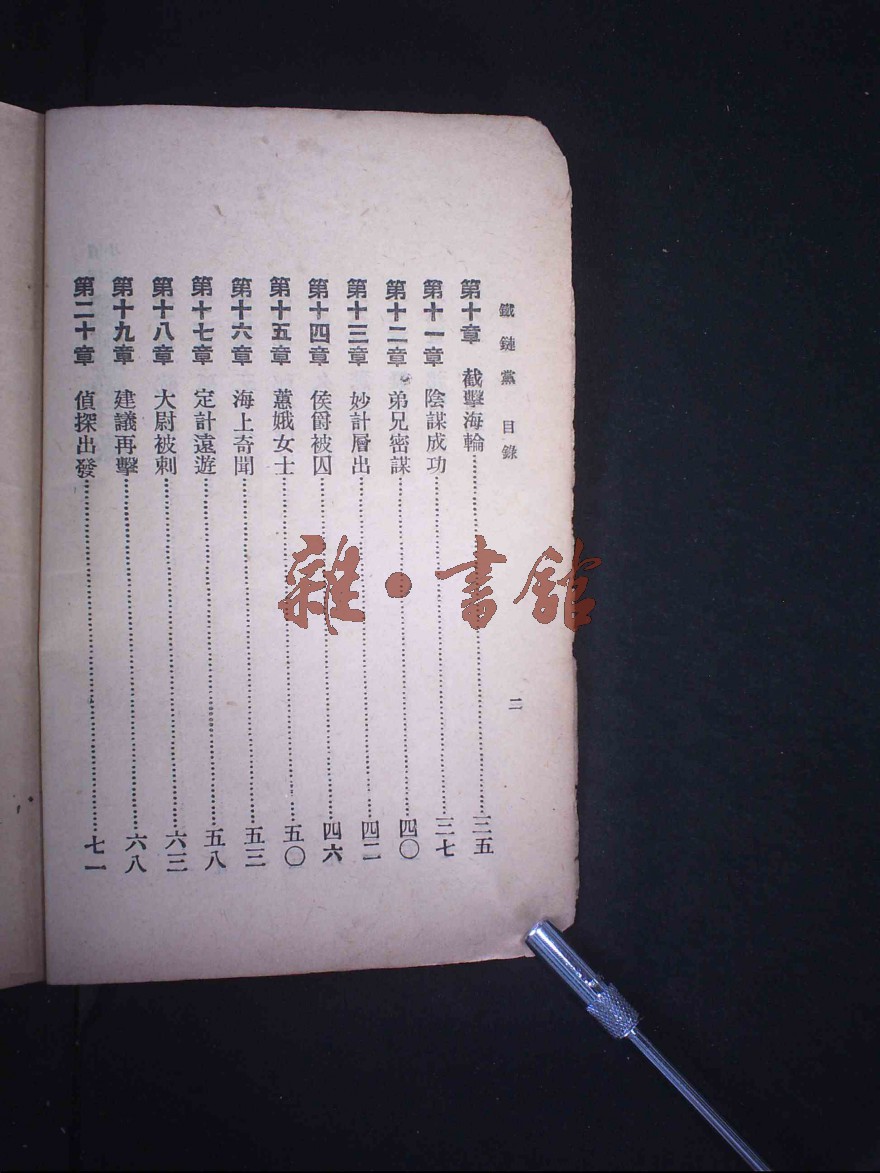 鐵鏈黨 目錄 二
第十章 截擊海輪……三五
第十一章 陰謀成功……三七
第十二章 弟兄密謀……四〇
第十三章 妙計層出……四二
第十四章 侯爵被囚……四六
第十五章 蕙娥女士……五〇
第十六章 海上奇聞……五三
第十七章 定計遠遊……五八
第十八章 大尉被刺……六三
第十九章 建議再擊……六八
第二十章 偵探出發……七一
雜·書館